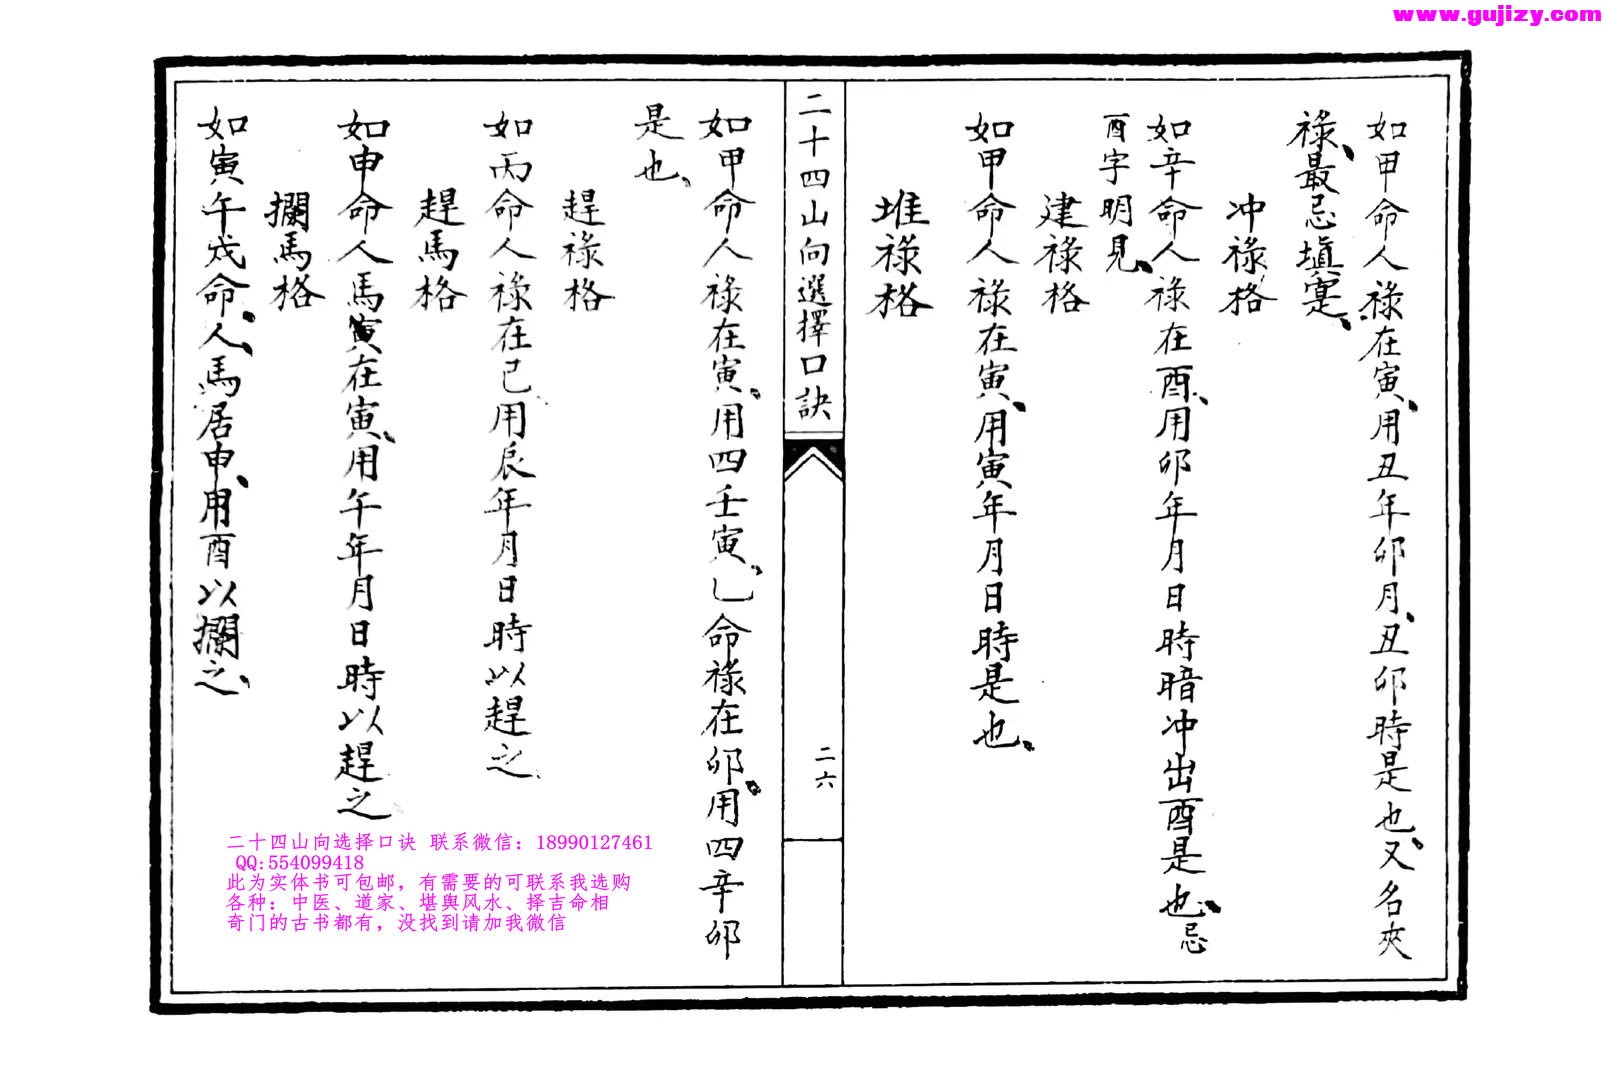 www.gujizy.com
如甲命人祿在寅、用丑年卯月、丑卯時是也、又名夾
祿、最忌填寔、
冲祿格
如辛命人祿在酉、用卯年月日時暗冲出酉是也、忌
酉字明見、
建祿格
如甲命人祿在寅、用寅年月日時是也、
堆祿格
二十四山向選擇口訣
二六
如甲命人祿在寅、用四壬寅、乙命祿在卯、用四辛卯
是也、
趕祿格
如丙命人祿在巳用辰年月日時以趕之、
趕馬格
如申命人馬寅在寅、用午年月日時以趕之
攔馬格
如寅午戌命、人、馬居申、用酉以攔之、
二十四山向选择口诀 联系微信：18990127461
QQ:554099418
此为实体书可包邮，有需要的可联系我选购
各种：中医、道家、堪舆风水、择吉命相
奇门的古书都有，没找到请加我微信